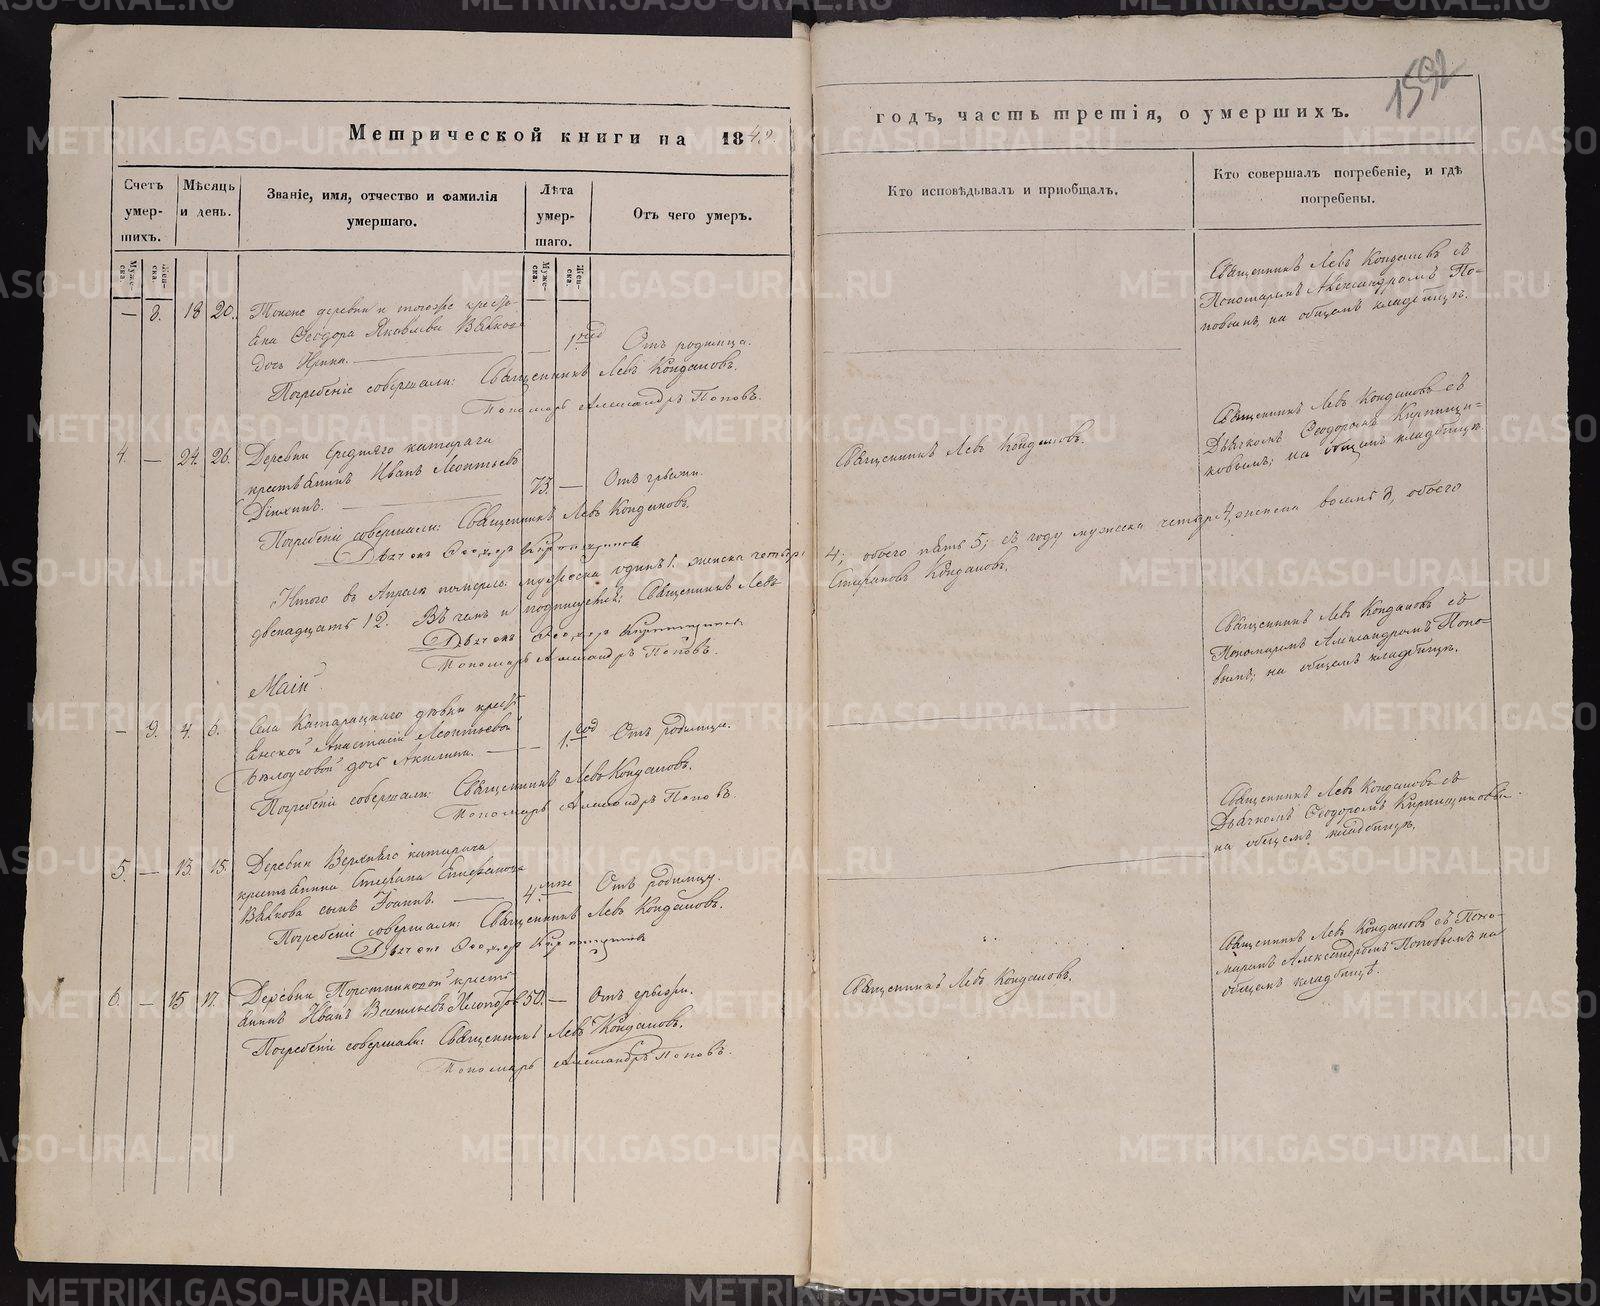 1592
Метрической книги на 184
годъ, часть третія, о умершихъ.
Счетъ умер-шихъ.
Мѣсяцъ и день.
Званіе, имя, отчество и фамилія умершаго.
Лѣта умер-шаго.
Отъ чего умеръ.
Кто исповѣдывалъ и пріобщалъ.
Кто совершалъ погребеніе, и гдѣ погребены.
Муже-ска.
Жен-ска.
Муже-ска.
Жен-ска.
— 8. 18 20. деревни и тогоже кресть-
яна Ѳеодора Яковлева
дочь Ирина. — 1. годъ Отъ родимца.
Погребеніе совершали: Священникъ Левъ Кондаковъ.
Пономарь Александръ Поповъ.
Священникъ Левъ Кондаковъ съ
Пономаремъ Александромъ По-
повымъ, на общемъ кладбищѣ.
4. — 24. 26. Деревни Средняго катарача
крестьянинъ Иванъ Леонтьевъ
73. — Отъ грыжи.
Погребеніе совершали: Священникъ Левъ Кондаковъ.
Дьячекъ Ѳеодоръ Кирпищиковъ
Священникъ Левъ Кондаковъ.
Священникъ Левъ Кондаковъ съ
Дьячкомъ Ѳеодоромъ Кирпищи-
ковымъ; на общемъ кладбищѣ.
Итого въ Апрелѣ померло: мужеска одинъ 1. женска четыре
4; обоего пять 5; съ году мужеска четыре 4, женска восемь 8, обоего
двенадцать 12. Въ чемъ и подписуемся: Священникъ Левъ
Стефановъ Кондаковъ.
Дьячекъ Ѳеодоръ Кирпищиковъ
Пономарь Александръ Поповъ.
Маій
— 9. 4. 6. Села Катарацкаго дѣвки крестъ-
янской Анастасіи Леонтьевой
Бѣлоусовой дочь Акилина. — 1. годъ Отъ родимца.
Погребеніе совершали: Священникъ Левъ Кондаковъ.
Пономарь Александръ Поповъ.
Священникъ Левъ Кондаковъ съ
Пономаремъ Александромъ Попо-
вымъ; на общемъ кладбищѣ.
5. — 13. 15. Деревни Верхняго катарача
крестьянина Стефана
сынъ Іоаннъ. — 4. Отъ родимцу.
Погребеніе совершали: Священникъ Левъ Кондаковъ.
Дьячекъ Ѳеодоръ Кирпищиковъ
Священникъ Левъ Кондаковъ съ
Дьячкомъ Ѳеодоромъ Кирпищиковымъ
на общемъ кладбищѣ.
6. — 15 17. Деревни кресть-
янинъ Иванъ Васильевъ 50. — Отъ грыжи.
Погребеніе совершали: Священникъ Левъ Кондаковъ.
Пономарь Александръ Поповъ.
Священникъ Левъ Кондаковъ.
Священникъ Левъ Кондаковъ съ Поно-
маремъ Александромъ Поповымъ на
общемъ кладбищѣ.
METRIKI.GASO-URAL.RU